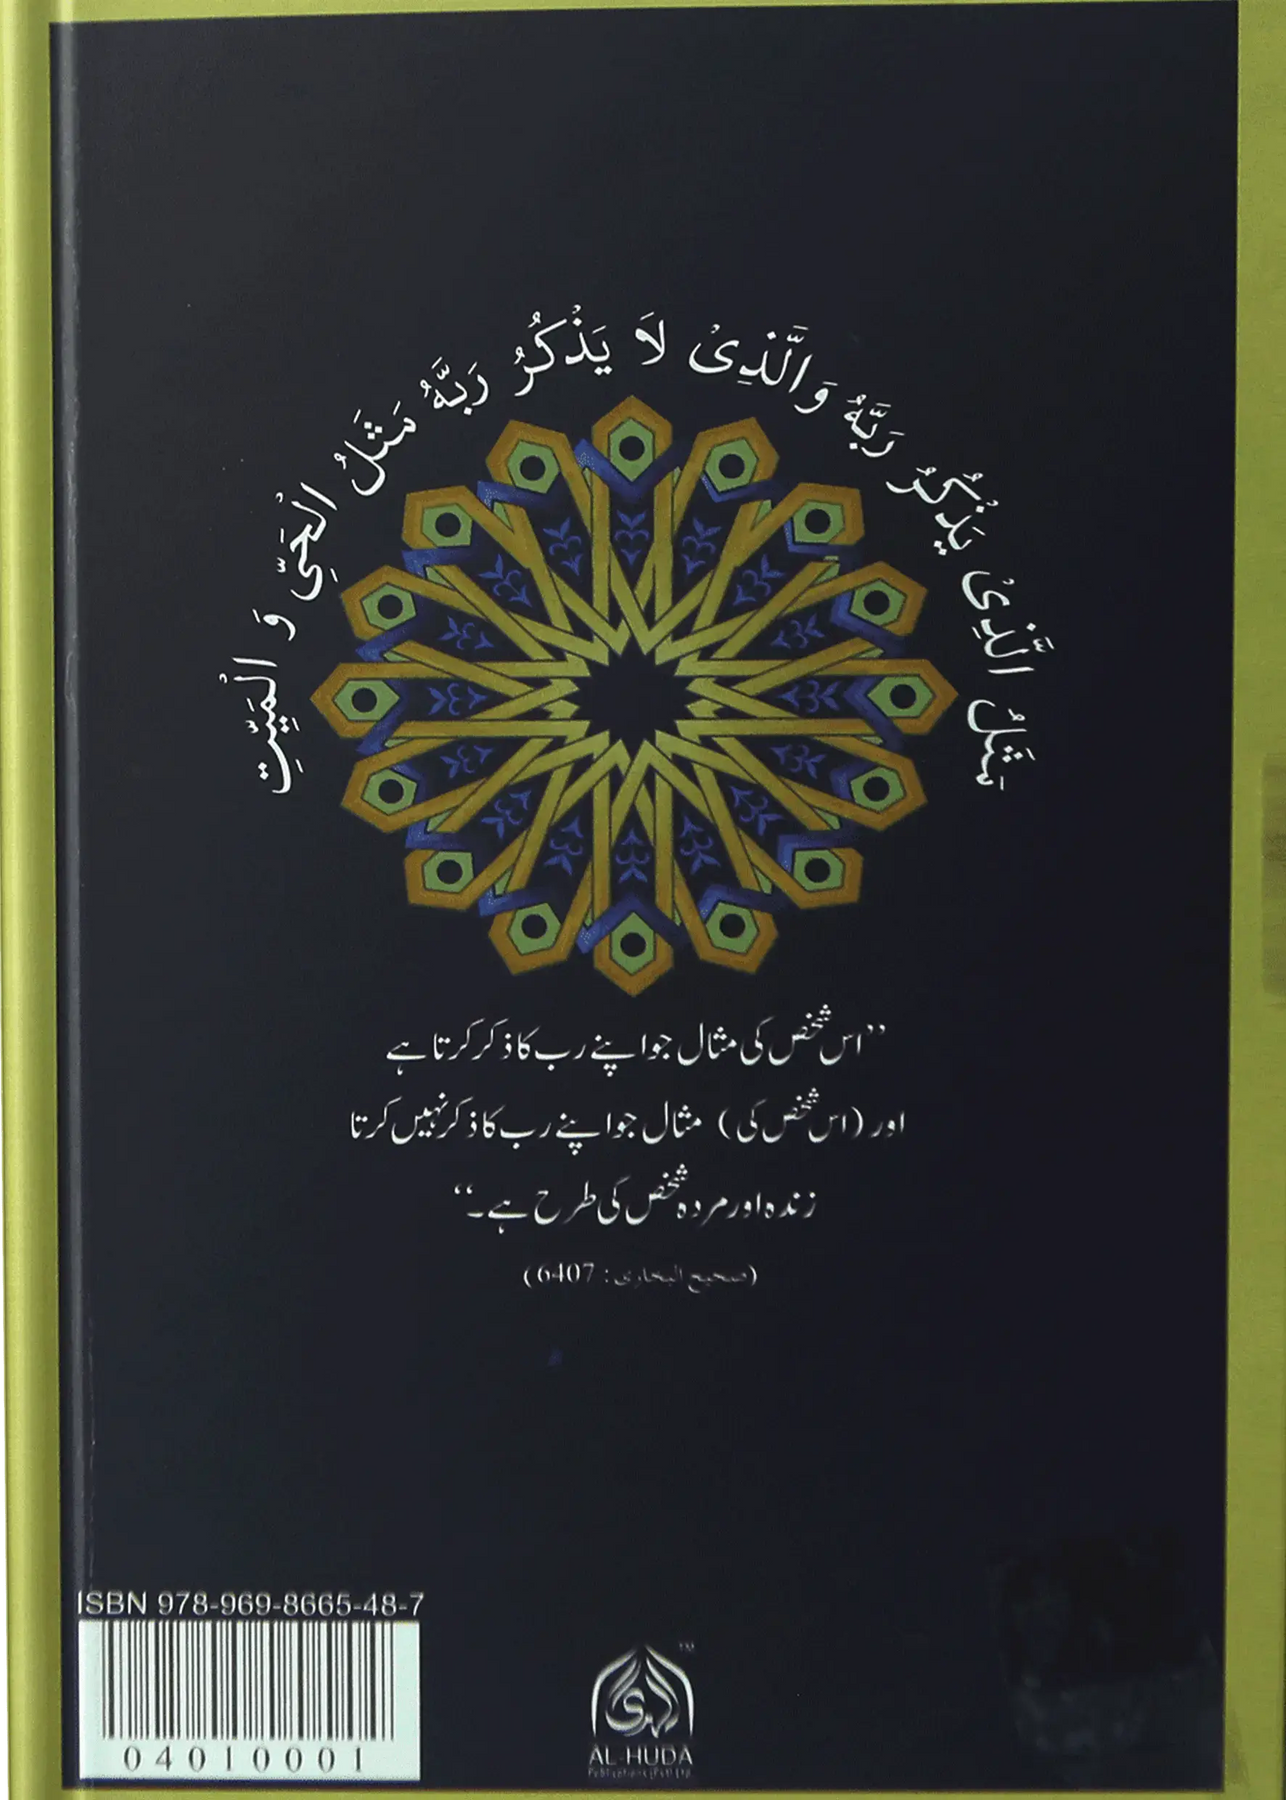 مَثَلُ الَّذِىْ يَذْكُرُ رَبَّهُ وَالَّذِىْ لَا يَذْكُرُ رَبَّهُ مَثَلُ الْحَىِّ وَ الْمَيِّتِ
”اس شخص کی مثال جو اپنے رب کا ذکر کرتا ہے
اور (اس شخص کی) مثال جو اپنے رب کا ذکر نہیں کرتا
زندہ اور مردہ شخص کی طرح ہے۔“
(صحیح البخاری: 6407)
ISBN 978-969-8665-48-7
04010001
الهدى
™
AL-HUDA
Publications (Pvt) Ltd.